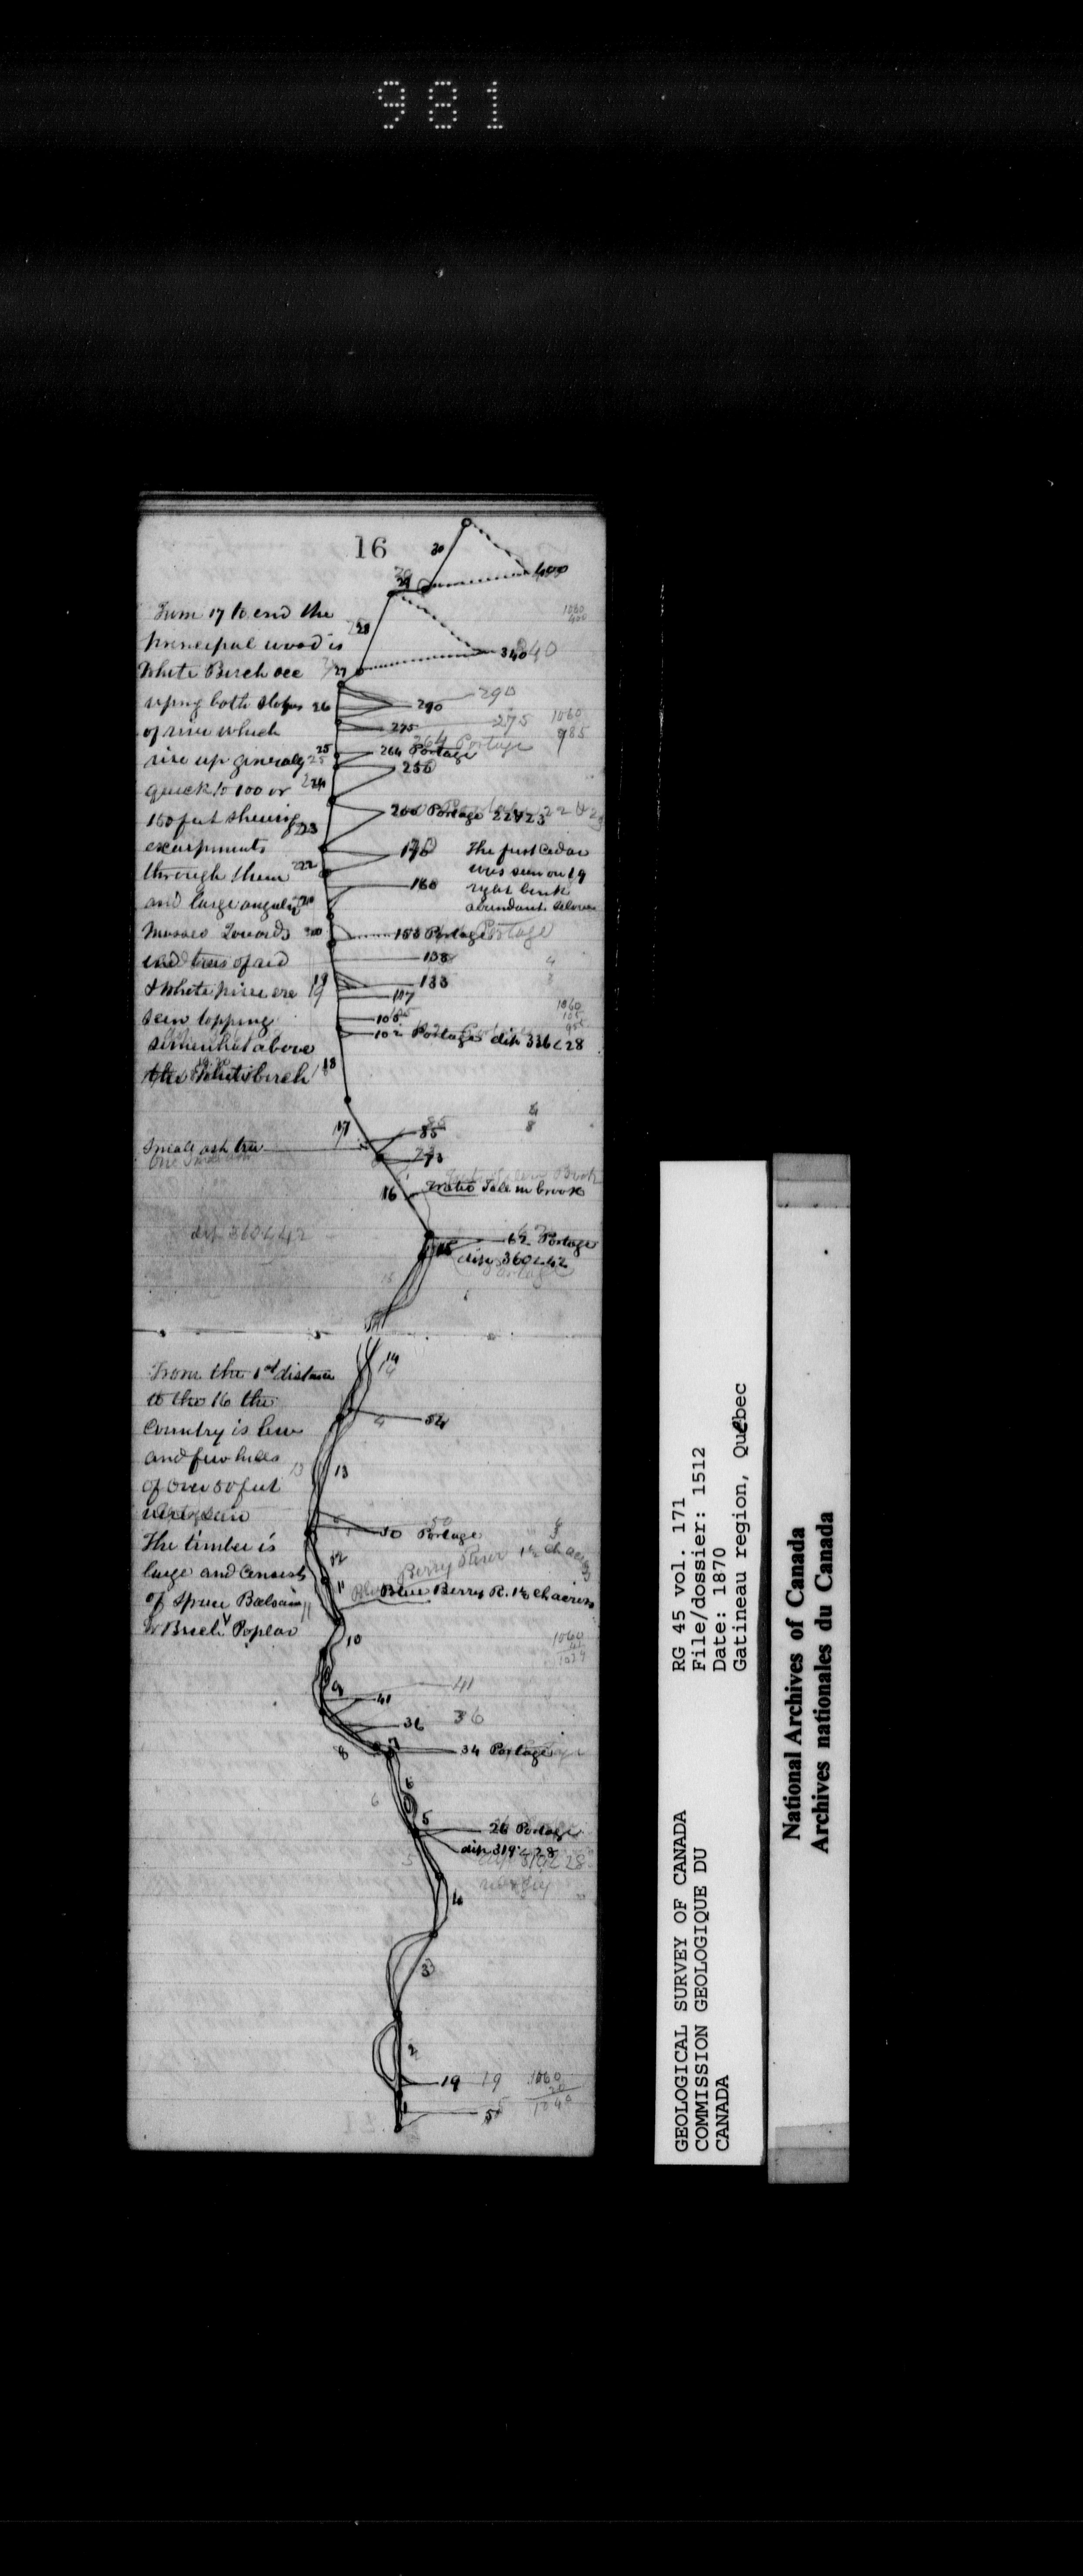 981
16
30
400
29
From 17 to end the
28
principal wood is
340
White Birch occ
27
290
uping both slopes 26
275
of river which
264 Portage
25
rise up generaly
250
quick to 100 or
24
200 Portage 22 & 23
150 feet shewing
23
escarpments
190
The first Cedar
was seen on 19
right bank
abundant below
through them
22
160
and large angular
Masses Towards
20
153 Portage
end trees of red
138
& White pine are
19
133
107
seen topping
105
102 Portage dist 336 < 28
somewhat above
the White birch
18
17
85
Small ash tree
73
16
brook
62 Portage
dist 360 < 42
15
From the 1st distance
14
to the 16 the
Country is low
54
and few hills
13
of over 50 feet
were seen
50 Portage
The timber is
12
large and Consists
11
Blue Berry R. 1½ chains
of Spruce Balsam
W Birch Poplar
10
9
41
36
8
7
34 Portage
6
5
26 Portage
dist 319 < 28
4
3
2
19
1
5
GEOLOGICAL SURVEY OF CANADA
COMMISSION GEOLOGIQUE DU
CANADA
RG 45 vol. 171
File/dossier: 1512
Date: 1870
Gatineau region, Québec
National Archives of Canada
Archives nationales du Canada